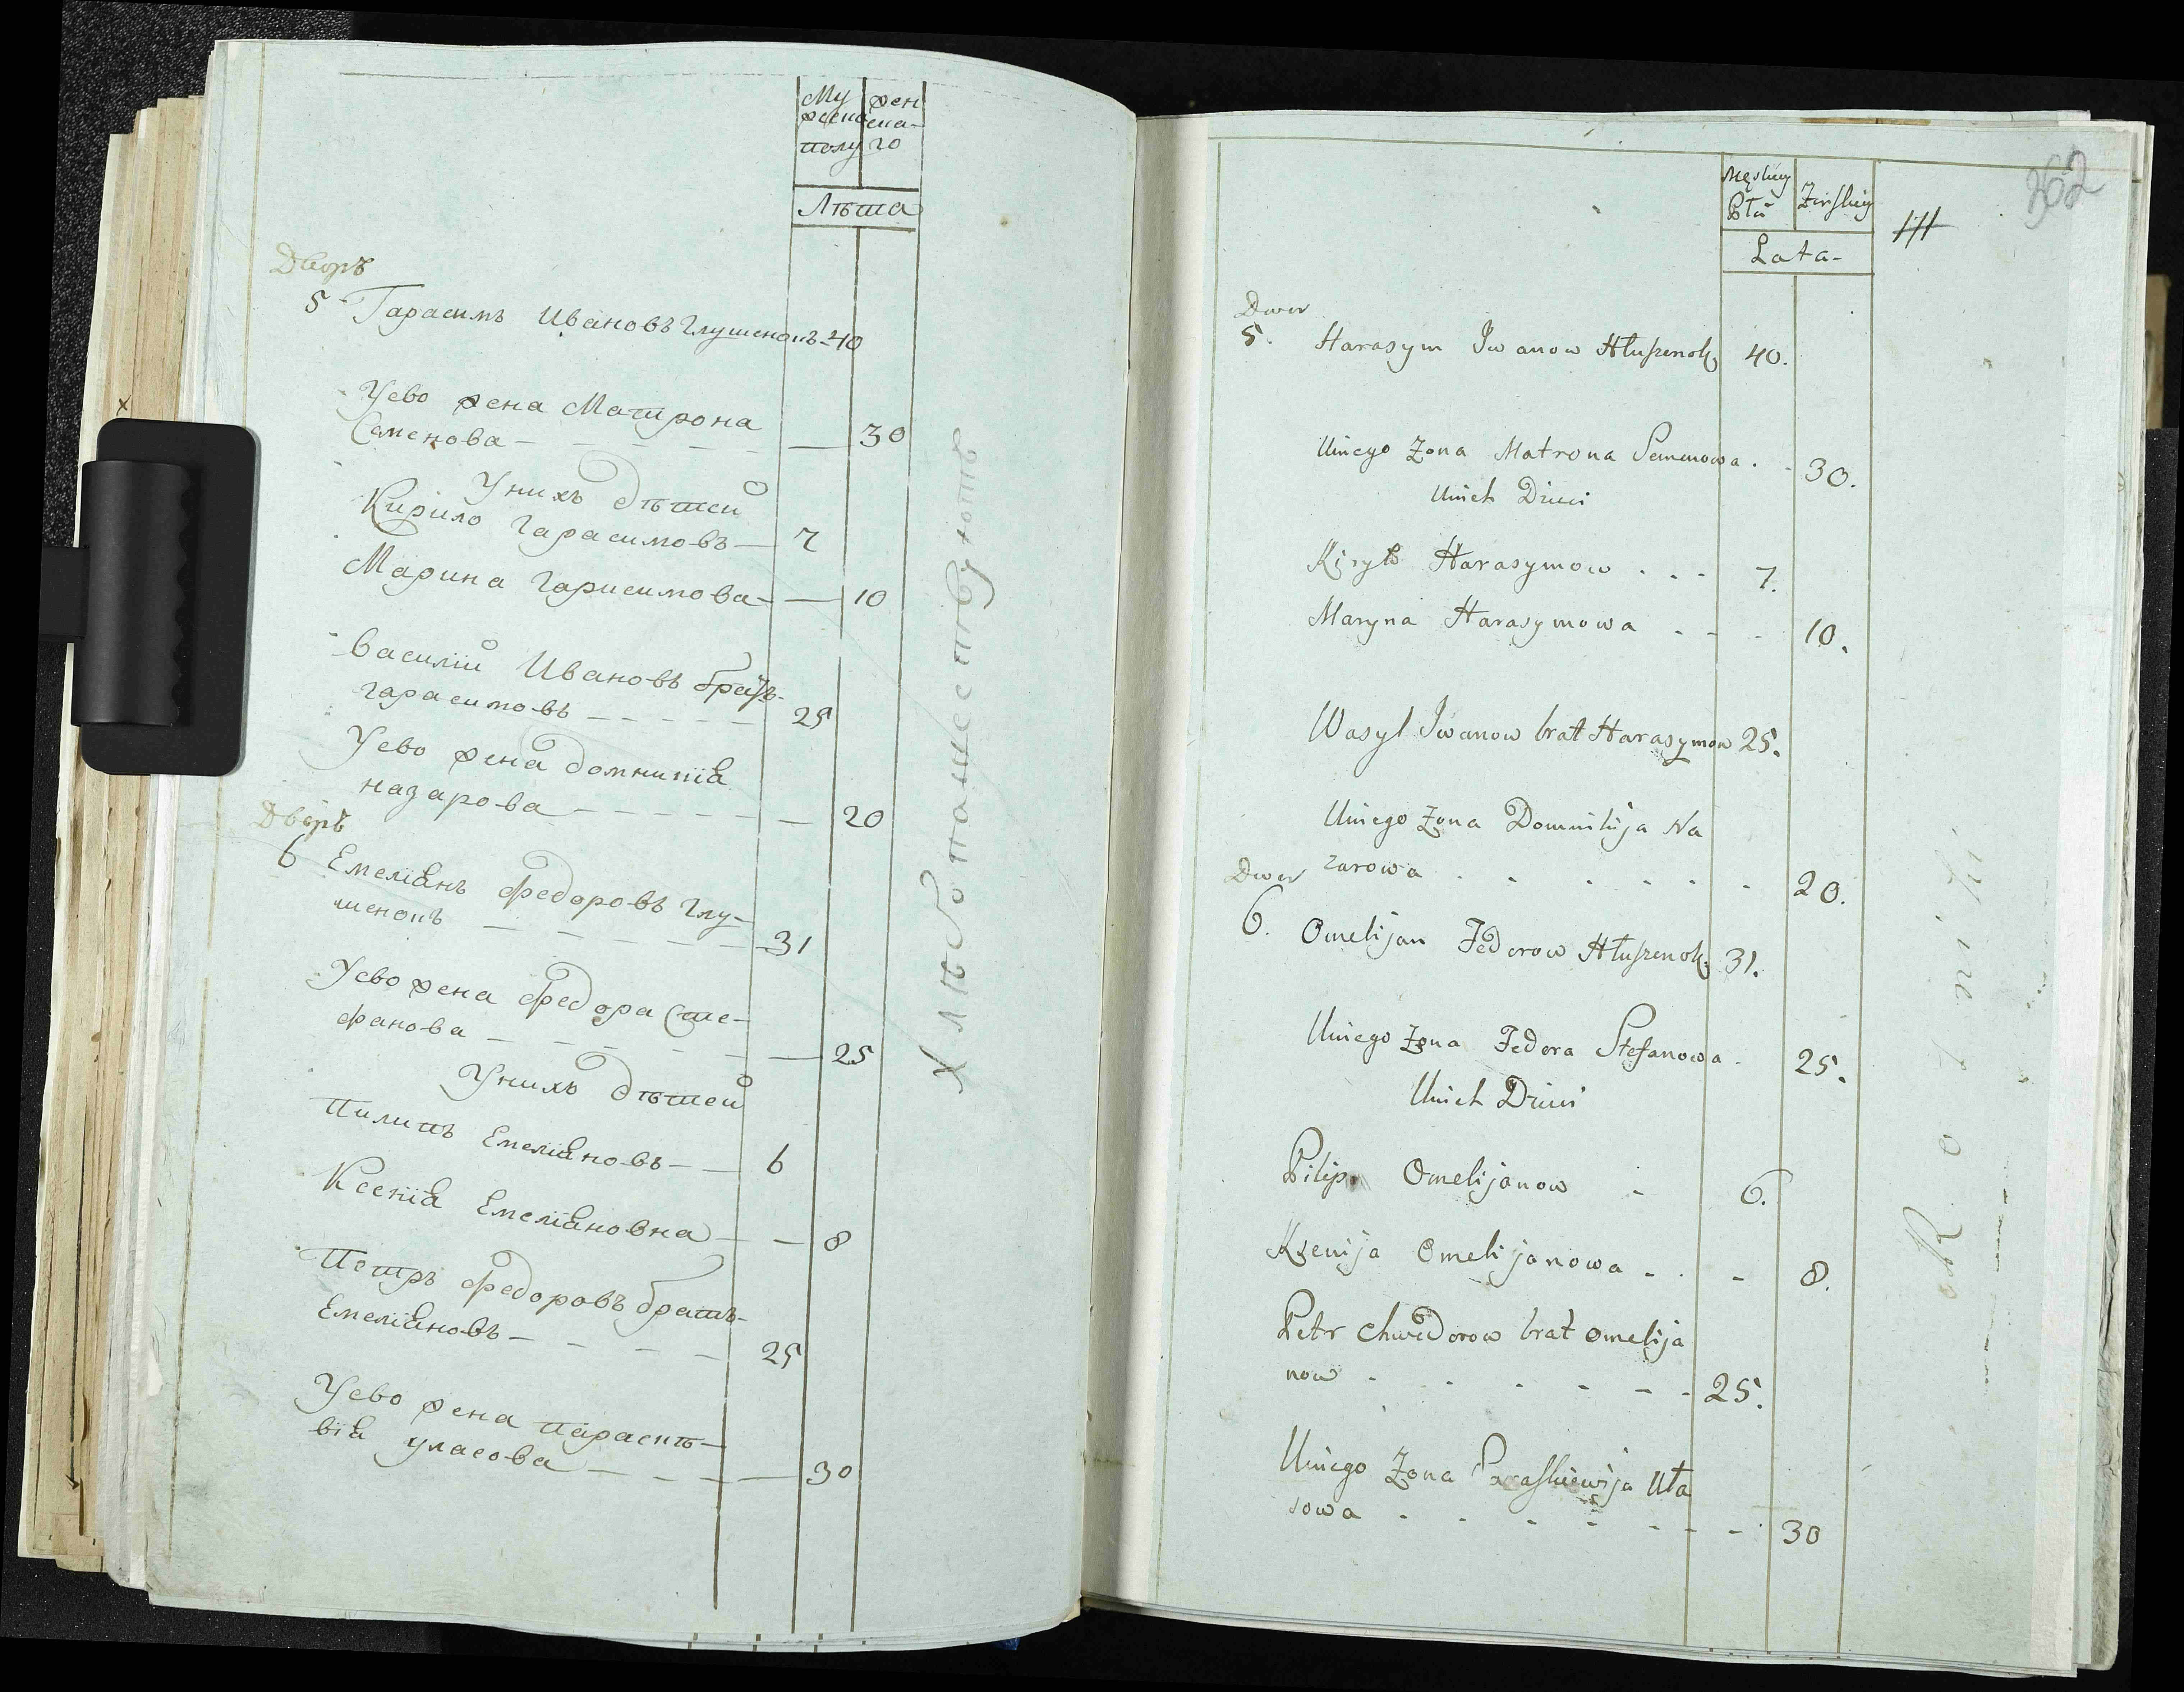 Му
жеска
полу
жен
ска-
го
Лѣта
Дворъ
5 Гарасимъ Ивановъ Глушенокъ 40
Уево жена Матрона
Семенова — 30
Унихъ дѣтей
Кирило Гарасимовъ — 7
Марина Гарасимова — 10
Василій Ивановъ братъ
гарасимовъ — 25
Уево жена домникія
назарова — 20
Дворъ
6 Емеліянъ федоровъ глу-
шенокъ — 31
Уево жена федора Сте-
фанова — 25
Унихъ дѣтей
Пилипъ Емеліяновъ — 6
Ксенія Емеліяновна — 8
Петръ федоровъ братъ
Емеліяновъ — 25
Уево жена Параскѣ-
вія уласова — 30
Хлѣбопашествуютъ
362
111
Męskiey
Płci
Żeńskiey
Lata-
Dwor
5. Harasym Iwanow Hłuszenok 40.
Uniego Żona Matrona Semenowa . - 30.
Unich Dzieci
Kiryło Harasymow . . - 7.
Maryna Harasymowa . - - 10.
Wasyl Iwanow brat Harasymow 25.
Uniego Żona Domnikija Na
zarowa . - . - - - - 20.
Dwor
6. Omelijan Fedorow Hłuszenok 31.
Uniego Żona Fedora Stefanowa - 25.
Unich Dzieci
Pilip Omelijanow - 6.
Ksenija Omelijanowa - . - 8.
Petr Chwedorow brat Omelija
now - - - - - - 25.
Uniego Żona Paraskiewija Uła
sowa - - - - - - - 30
Rolniki